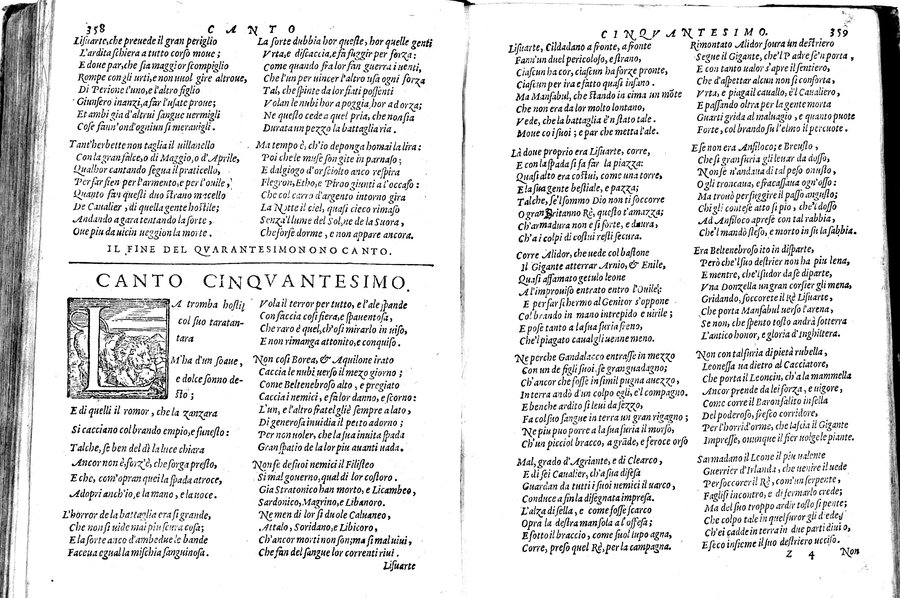 358 CANTO
Lisuarte, che preuede il gran periglio
L'ardita schiera a tutto corso moue;
E doue par, che sia maggior scompiglio
Rompe con gli urti, e non uuol gire altroue,
Di Perione l'uno, e l'altro figlio
Giunsero inanzi, a far l'usate proue;
Et ambi gia d'altrui sangue uermigli
Cose fann'ond'ogniun si merauigli.
Tant'herbette non taglia il uillanello
Con la gran falce, o di Maggio, o d'Aprile,
Qualhor cantando segua il praticello,
Per far fien per l'armento, e per l'ouile,
Quanto fan questi duo strano macello
De Caualier, di quella gente hostile;
Andando a gara tentando la sorte,
Oue piu da uicin ueggion la morte.
La sorte dubbia hor queste, hor quelle genti
Vrta, e discaccia, e fa fuggir per forza:
Come quando fra lor fan guerra i uenti,
Che l'un per uincer l'altro usa ogni forza
Tal, che spinte da lor fiati possenti
Volan le nubi hor a poggia, hor ad orza;
Ne questo cede a quel pria, che non sia
Durata un pezzo la battaglia ria.
Ma tempo è, ch'io deponga homai la lira:
Poi che le muse son gite in parnaso;
E dal giogo d'or sciolto anco respira
Flegron, Etho, e Piroo giunti a l'occaso:
Che col carro d'argento intorno gira
La Notte il ciel, quasi cieco rimaso
Senza'l lume del Sol, ne de la Suora,
Che forse dorme, e non appare ancora.
IL FINE DEL QVARANTESIMONONO CANTO.
CANTO CINQVANTESIMO.
LA tromba hostil
col suo taratan-
tara
M'ha d'un soaue,
e dolce sonno de-
sto;
E di quelli il romor, che la zanzara
Si cacciano col brando empio, e funesto:
Talche, se ben del dì la luce chiara
Ancor non è, forz'è, che sorga presto,
E che, com'opran quei la spada atroce,
Adopri anch'io, e la mano, e la uoce.
L'horror de la battaglia era sì grande,
Che non si uide mai piu scura cosa;
E la sorte anco d'ambedue le bande
Faceua egual la mischia sanguinosa.
Vola il terror per tutto, e l'ale spande
Con faccia così fiera, e spauentosa,
Che raro è quel, ch'osi mirarlo in uiso,
E non rimanga attonito, e conquiso.
Non così Borea, & Aquilone irato
Caccia le nubi uerso il mezo giorno;
Come Beltenebroso alto, e pregiato
Caccia i nemici, e fa lor danno, e scorno:
L'un, e l'altro fratel gli è sempre a lato,
Di generosa inuidia il petto adorno;
Per non uoler, che la sua inuitta spada
Gran spatio de la lor piu auanti uada.
Non fe de suoi nemici il Filisteo
Si mal gouerno, qual di lor costoro.
Gia Stratonico han morto, e Licambeo,
Sardonico, Magrino, e Libanoro.
Ne men di lor si duole Caluaneo,
Attalo, Soridano, e Libicoro,
Ch'ancor morti non son; ma si mal uiui,
Che fan del sangue lor correnti riui.
Lisuarte
CINQVANTESIMO. 359
Lisuarte, Cildadano a fronte, a fronte
Fann'un duel pericoloso, e strano,
Ciascun ha cor, ciascun ha forze pronte,
Ciascun per ira è fatto quasi insano.
Ma Mansabul, che stando in cima un mōte
Che non era da lor molto lontano,
Vede, che la battaglia è'n stato tale.
Moue coi suoi; e par che metta l'ale.
Là doue proprio era Lisuarte, corre,
E con la spada si fa far la piazza:
Quasi alto era costui, come una torre,
E la sua gente bestiale, e pazza;
Talche, se'l sommo Dio non ti soccorre
O gran Britanno Rè, questo t'amazza;
Ch'armadura non e si forte, e dura,
Ch'a i colpi di costui resti secura.
Corre Alidor, che uede col bastone
Il Gigante atterrar Arnio, & Enile,
Quasi affamato getulo leone
A l'improuiso entrato entro l'Ouile;
E per far schermo al Genitor s'oppone
Col brando in mano intrepido e uirile;
E pose tanto a la sua furia freno,
Che'l piagato caual gli uenne meno.
Ne perche Gandalacco entrasse in mezzo
Con un de figli suoi, se gran guadagno;
Ch'ancor che fosse in simil pugna auezzo,
In terra andò d'un colpo egli, e'l compagno.
E benche ardito si leui da sezzo,
Fa col suo sangue in terra un gran rigagno;
Ne piu puo porre a la sua furia il morso,
Ch'un picciol bracco, a grāde, e feroce orso
Mal, grado d'Agriante, e di Clearco,
E di sei Caualier, ch'a sua difesa
Guardan da tutti i suoi nemici il uarco,
Conduce a fin la disegnata impresa.
L'alza di sella, e come fosse scarco
Opra la destra mansola a l'offesa;
E sotto il braccio, come suol lupo agna,
Corre, preso quel Rè, per la campagna.
Rimontato Alidor soura un destriero
Segue il Gigante, che'l Padre se'n porta,
E con tanto ualor s'apre il sentiero,
Che d'aspettar alcun non si conforta,
Vrta, e piaga il cauallo, e'l Caualiero,
E passando oltra per la gente morta
Guarti grida al maluagio, e quanto puote
Forte, col brando su l'elmo il percuote.
E se non era Ansiloco; e Breusto,
Che si gran furia gli leuar da dosso,
Non se n'andaua di tal peso onusto,
O gli troncaua, e fracassaua ogn'osso:
Ma trouò per fuggire il passo angusto;
Chi gli contese alto si pio, che si mosse
Ad Ansiloco aprese con tal rabbia,
Che'l mandò steso, e morto in su la sabbia.
Era Beltenebroso ito in disparte,
Però che'l suo destrier non ha piu lena,
E mentre, che'l suo da se diparte,
Vna Donzella un gran corsier gli mena,
Gridando, soccorete il Rè Lisuarte,
Che porta Mansabul uerso l'arena,
Se non, che spento tosto andrà sotterra
L'antico honor, e gloria d'Inghilterra.
Non con tal furia di pietà rubella,
Leonessa ua dietro al Cacciatore,
Che porta il Leoncin, ch'a la mammella
Ancor prende da lei forza, e uigore,
Come corre il Baron salito in sella
Del poderoso, fresco corridore,
Per l'horrid'orme, che lascia il Gigante
Impresse, ouunque il fier uolge le piante.
Sarmadano il Leone il piu ualente
Guerrier d'Irlanda, che uenire il uede
Per soccorrer il Rè, com'un serpente,
Fagli si incontro, e di fermarlo crede;
Ma del suo troppo ardir tosto si pente;
Che colpo tale in quel furor gli diede,
Ch'ei cadde in terra in due parti diuiso,
E seco insieme il suo destriero ucciso.
Z 4 Non